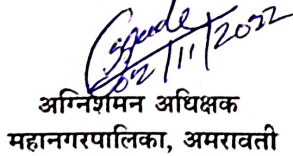 02/11/2022
अग्निशमन अधिक्षक
महानगरपालिका, अमरावती